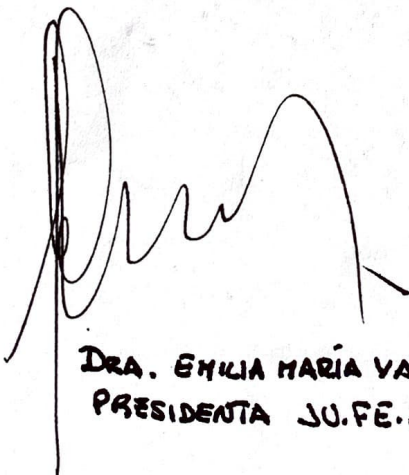 DRA. EMILIA MARÍA VA
PRESIDENTA JU.FE.